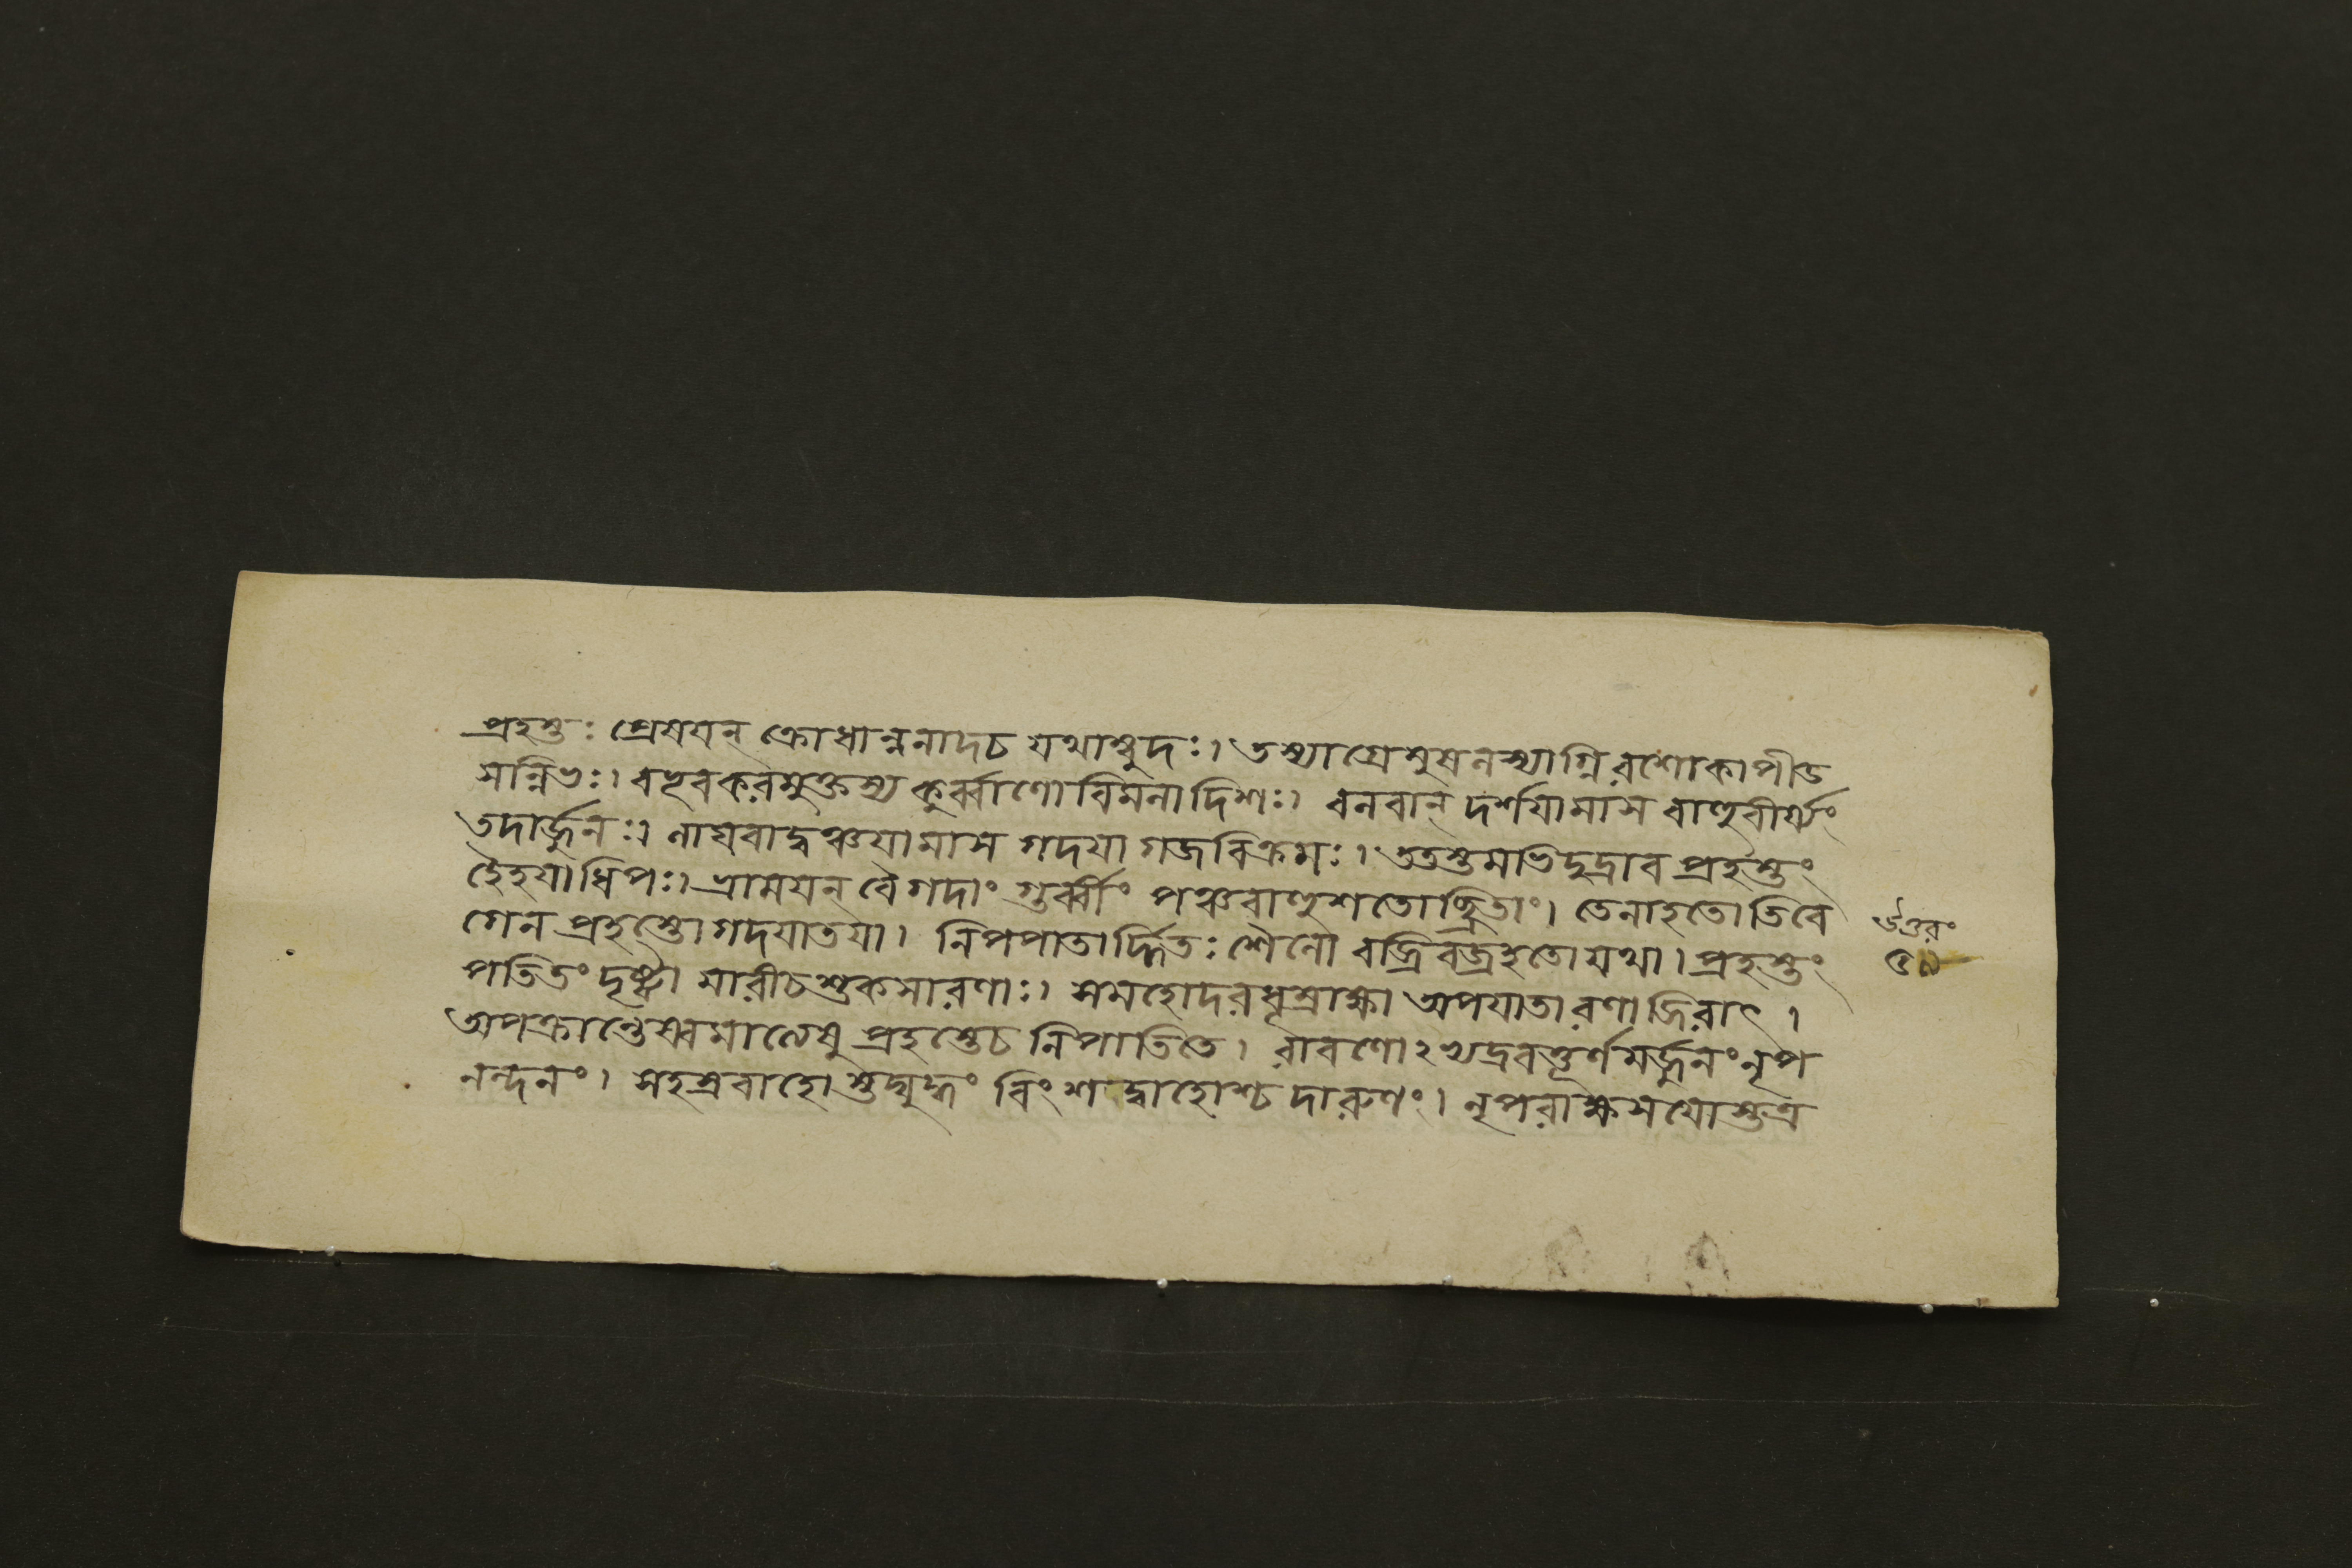 প্রহস্তঃ প্রেষযন্ ক্রোধান্ননাদচ যথাম্বুদঃ। তস্যাগ্রেমুষনস্যাগ্নিরশোকাপীড
সন্নিভঃ। বহূবকরমুক্তস্য কুর্ব্বাণো বিমনাদিশঃ। বনবান্ দর্শযামাস বাণুবীর্য্যং
তদার্জ্জুনঃ। ণাঘবাদ্বঞ্চযামাস গদযা গজবিক্রমঃ। ততস্তমভিদুদ্রাব প্রহস্তং
হৈহযাধিপঃ। ভ্রামযন্ বৈ গদাং গুর্ব্বীং পঞ্চবাণুশতোচ্ছ্রিতাং। তেনাহতোতিবে
গেন প্রহস্তো গদযাতযা। নিপপাতার্দ্দিতঃ শৈনো বজ্রিবজ্রহতো যথা। প্রহস্তং
পতিতং দৃষ্ট্বা মারীচশুকসারণাঃ। সমহোদরধূম্রাক্ষা অপযাতা রণাজিরাৎ।
অপক্রান্তেষ্বমাত্যেষু প্রহস্তেচ নিপাতিতে। রাবণোঽভ্যদ্রবত্তূর্ণমর্জ্জুনং নৃপ
নন্দনং। সহস্রবাহোস্তদ্যুদ্ধং বিংশদ্বাহোশ্চ দারুণং। নৃপরাক্ষসযোস্তত্র
উত্তরং
৫৯